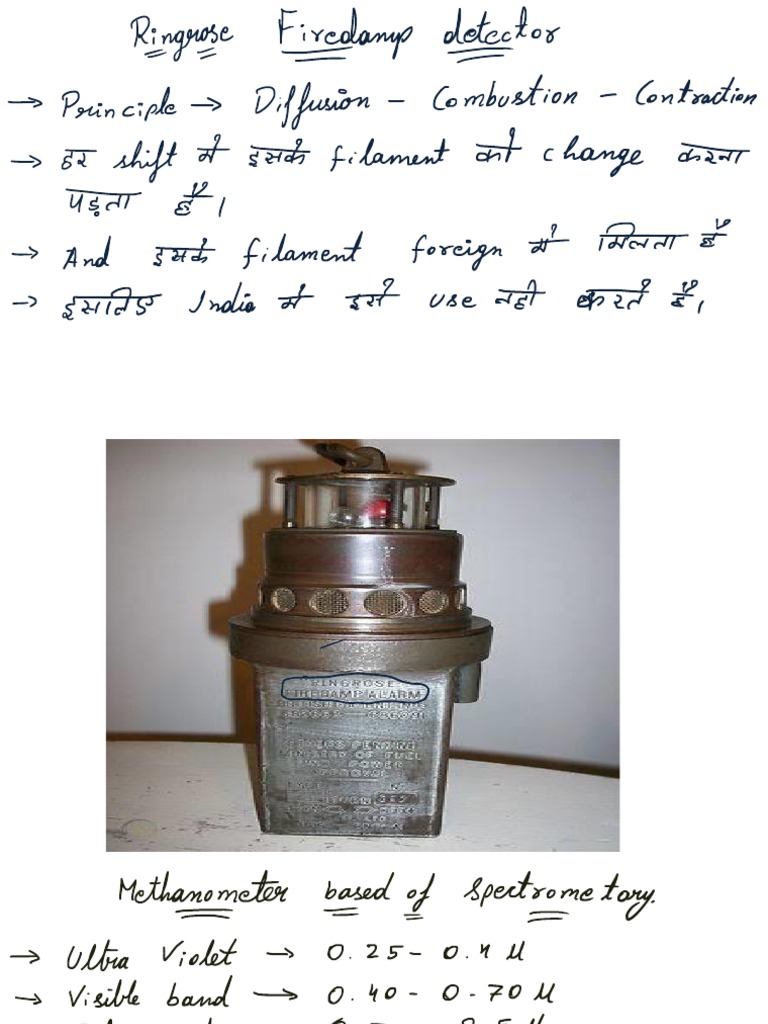 Ringrose Firedamp detector
→ Principle → Diffusion - Combustion - Contraction
→ हर shift में इसके filament को change करना
पड़ता है।
→ And इसके filament foreign में मिलता है
→ इसलिए India में इसे use नही करते है।
RINGROSE
FIREDAMP ALARM
BRITISH PATENT NOS
PENDING
OF FUEL
AND POWER
APPROVAL
Methanometer based of Spectrometary.
→ Ultra Violet → 0.25 - 0.4 μ
→ Visible band → 0.40 - 0.70 μ